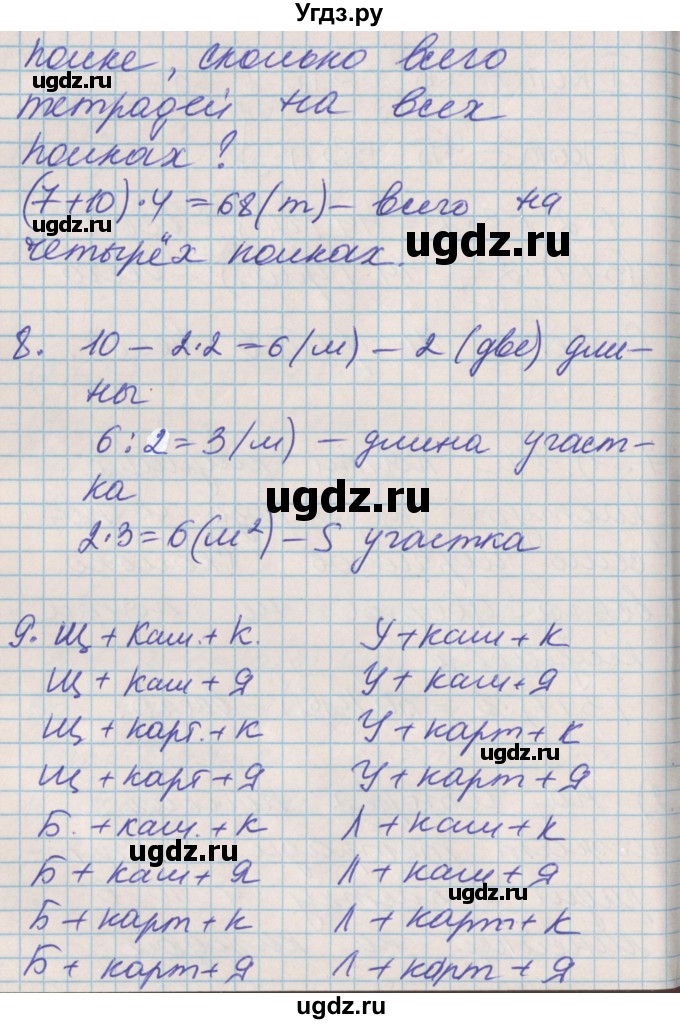 Угдз.ру
полке, сколько всего
ugdz.ru
тетрадей на всех
полках?
(7+10)·4=68(т)– всего на
ugdz.ru
четырёх полках.
8. 10 – 2·2=6(м) – 2 (две) дли–
ны
6:2=3(м) – длина участ–
ка
ugdz.ru
2·3=6(м²) – S участка
9. Щ + каш. + к. У+каш+к
Щ + каш + Я У+ каш+Я
Щ + карт. + к У + карт + к
ugdz.ru
Щ + карт + Я У + карт + Я
Б. + каш. + к Л + каш + к
ugdz.ru
Б + каш + Я Л + каш + Я
ugdz.ru
Б + карт + к Л + карт + к
Б + карт + Я Л + карт + Я
ugdz.ru